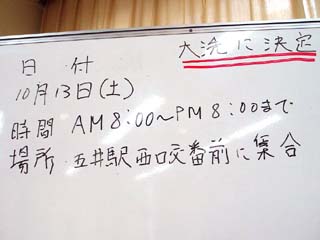 大洗に決定
日付
10月13日(土)
時間 AM8:00〜PM8:00まで
場所 五井駅西口交番前に集合